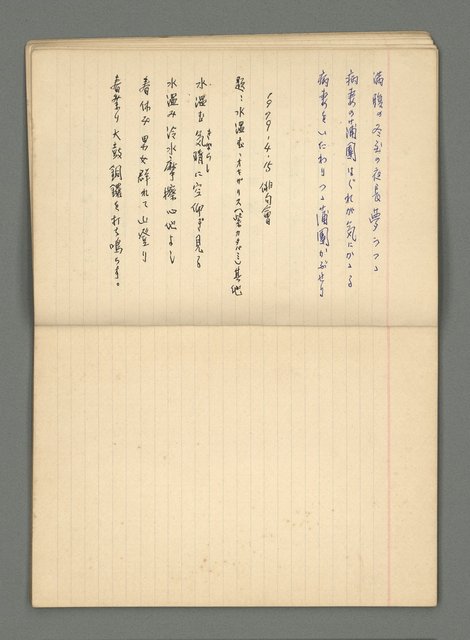 満腹の冬至の夜長夢うつつ
病妻の蒲團はぐれが気にかゝる
病妻をいたわりつつ蒲團かぶせり
1979.4.15 俳句會
題:水温む、オキザリス(紫カタバミ)其他
水温む気晴に空仰ぎ見る
きばらし
水温み冷水摩擦心地よし
春休み男女群れて山登り
春祭り大鼓銅鑼を打ち鳴らす。